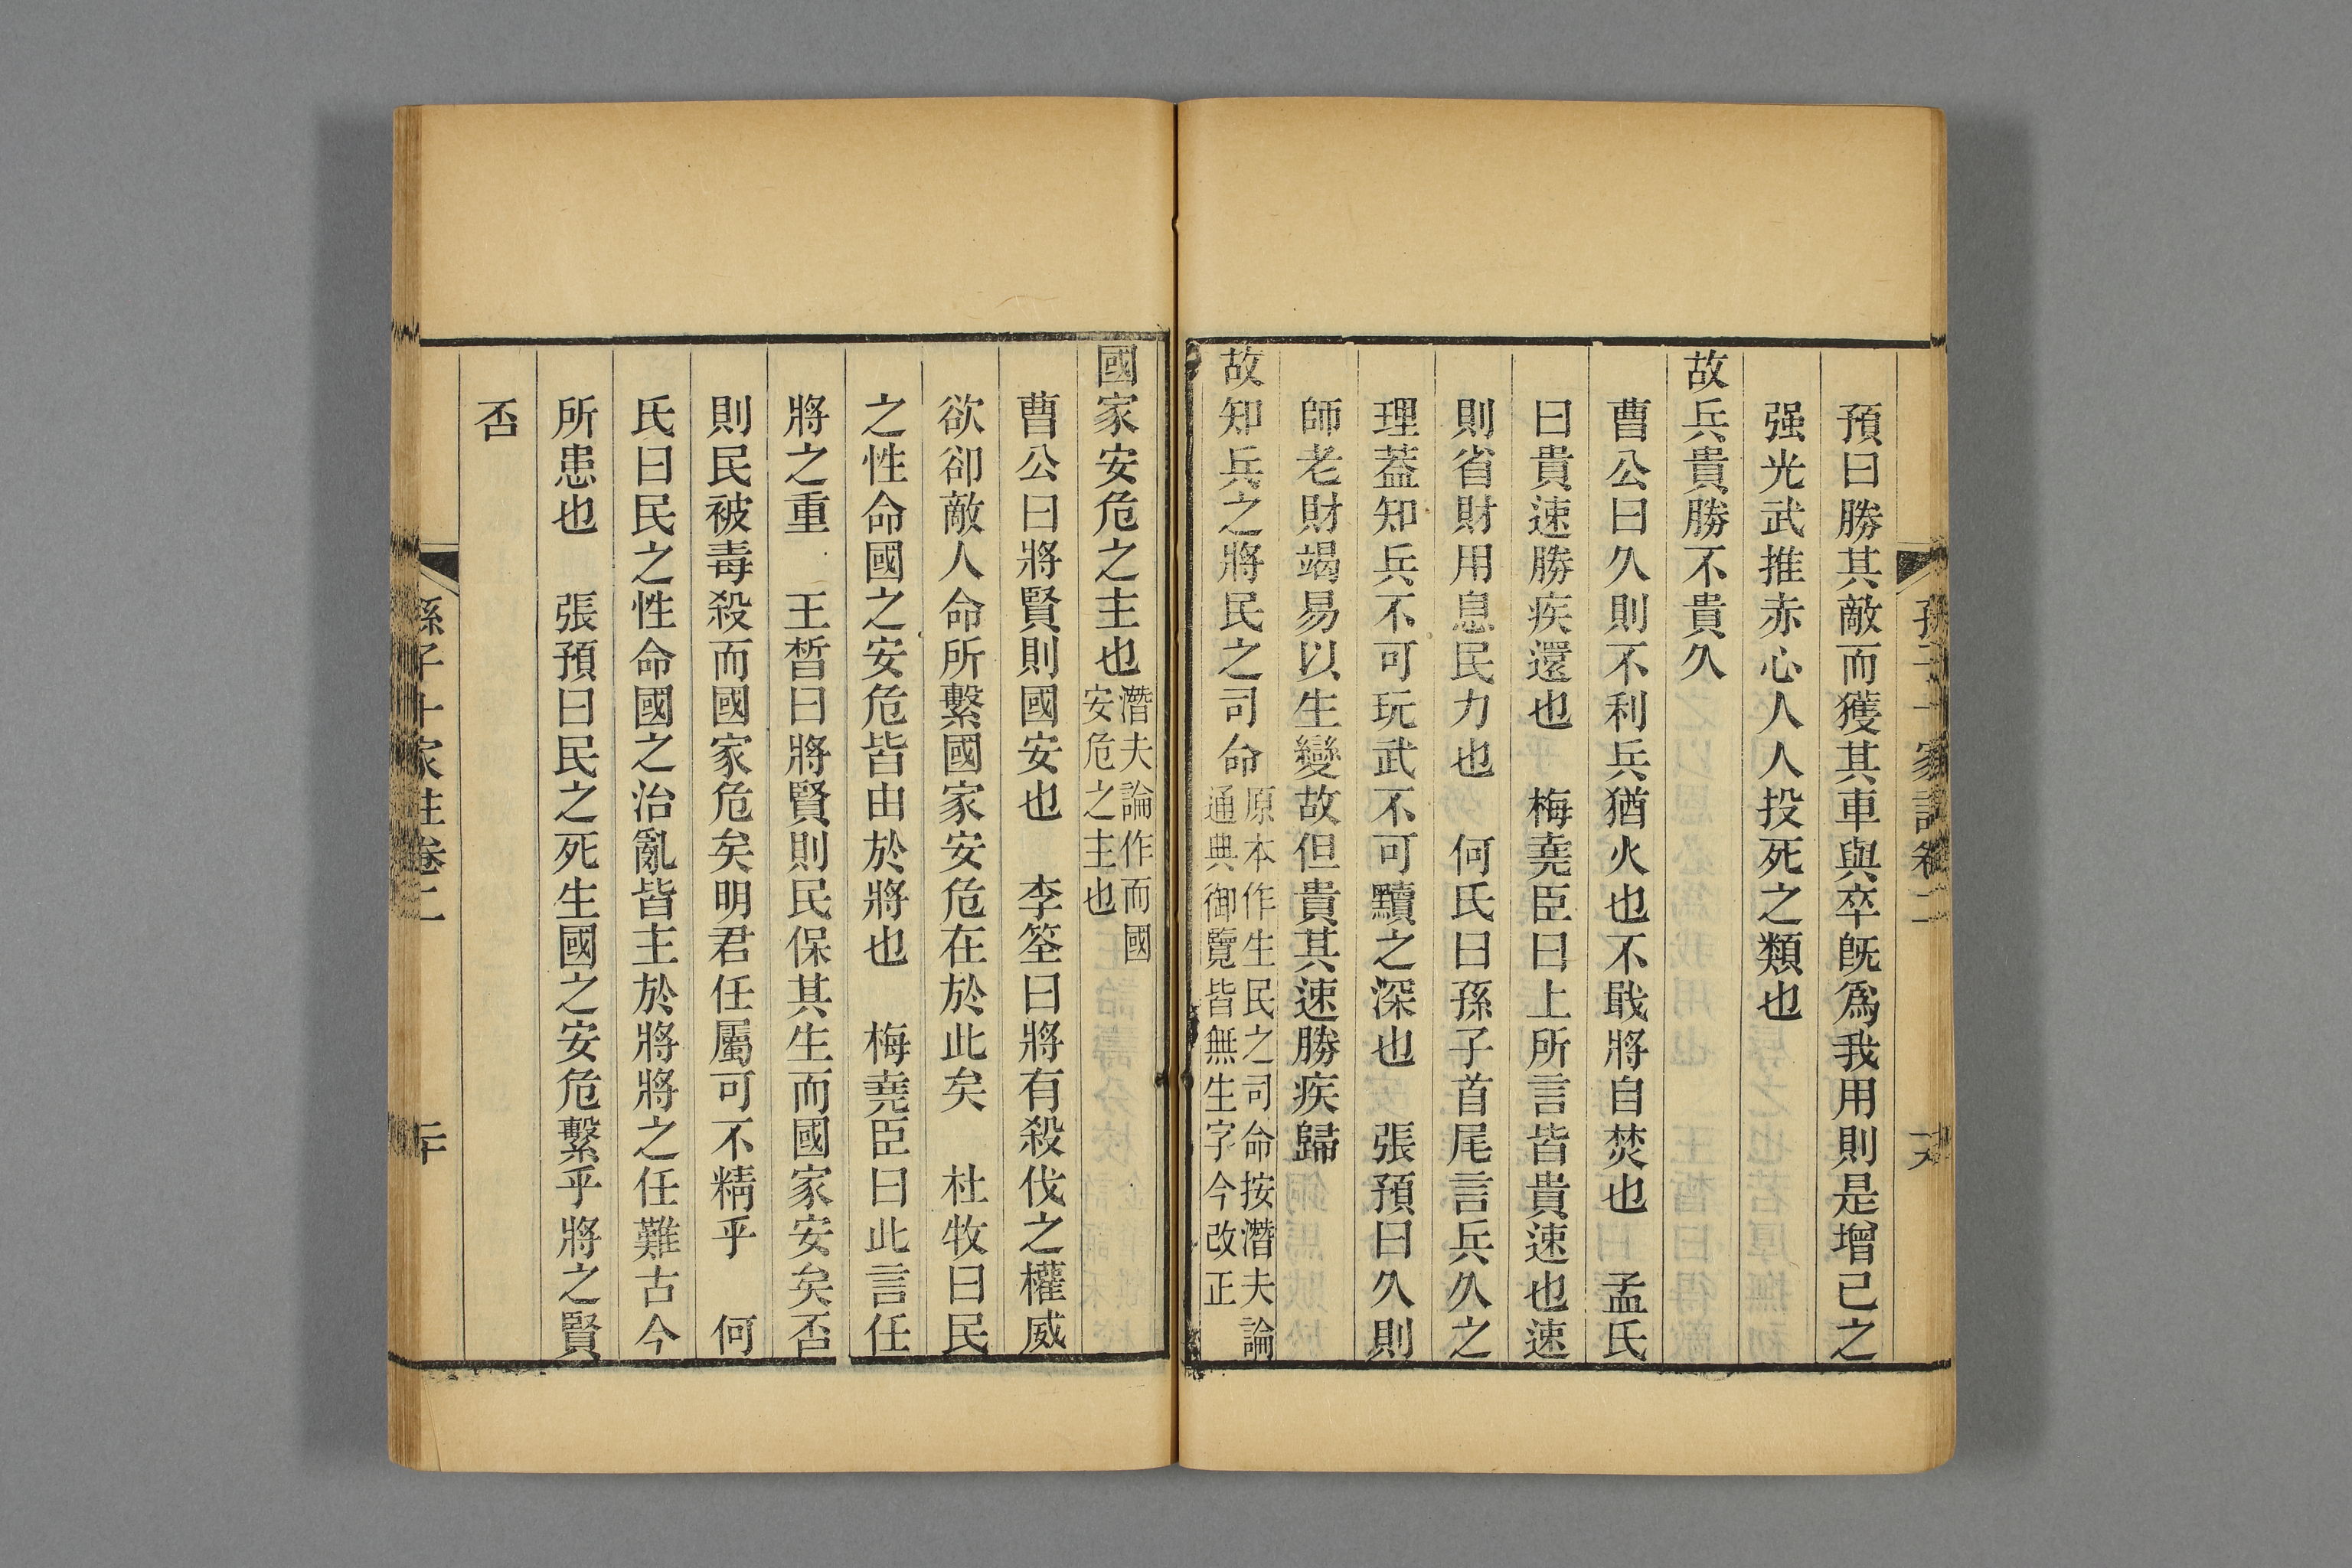 孫子十家註卷二
十九
預曰勝其敵而獲其車與卒旣爲我用則是增已之
强光武推赤心人人投死之類也
故兵貴勝不貴久
曹公曰久則不利兵猶火也不戢將自焚也　孟氏
曰貴速勝疾還也　梅堯臣曰上所言皆貴速也速
則省財用息民力也　何氏曰孫子首尾言兵久之
理蓋知兵不可玩武不可黷之深也　張預曰久則
師老財竭易以生變故但貴其速勝疾歸
故知兵之將民之司命原本作生民之司命按潛夫論
通典御覽皆無生字今改正
國家安危之主也潛夫論作而國
安危之主也
曹公曰將賢則國安也　李筌曰將有殺伐之權威
欲卻敵人命所繫國家安危在於此矣　杜牧曰民
之性命國之安危皆由於將也　梅堯臣曰此言任
將之重　王晳曰將賢則民保其生而國家安矣否
則民被毒殺而國家危矣明君任屬可不精乎　何
氏曰民之性命國之治亂皆主於將將之任難古今
所患也　張預曰民之死生國之安危繫乎將之賢
否
孫子十家註卷二
二十